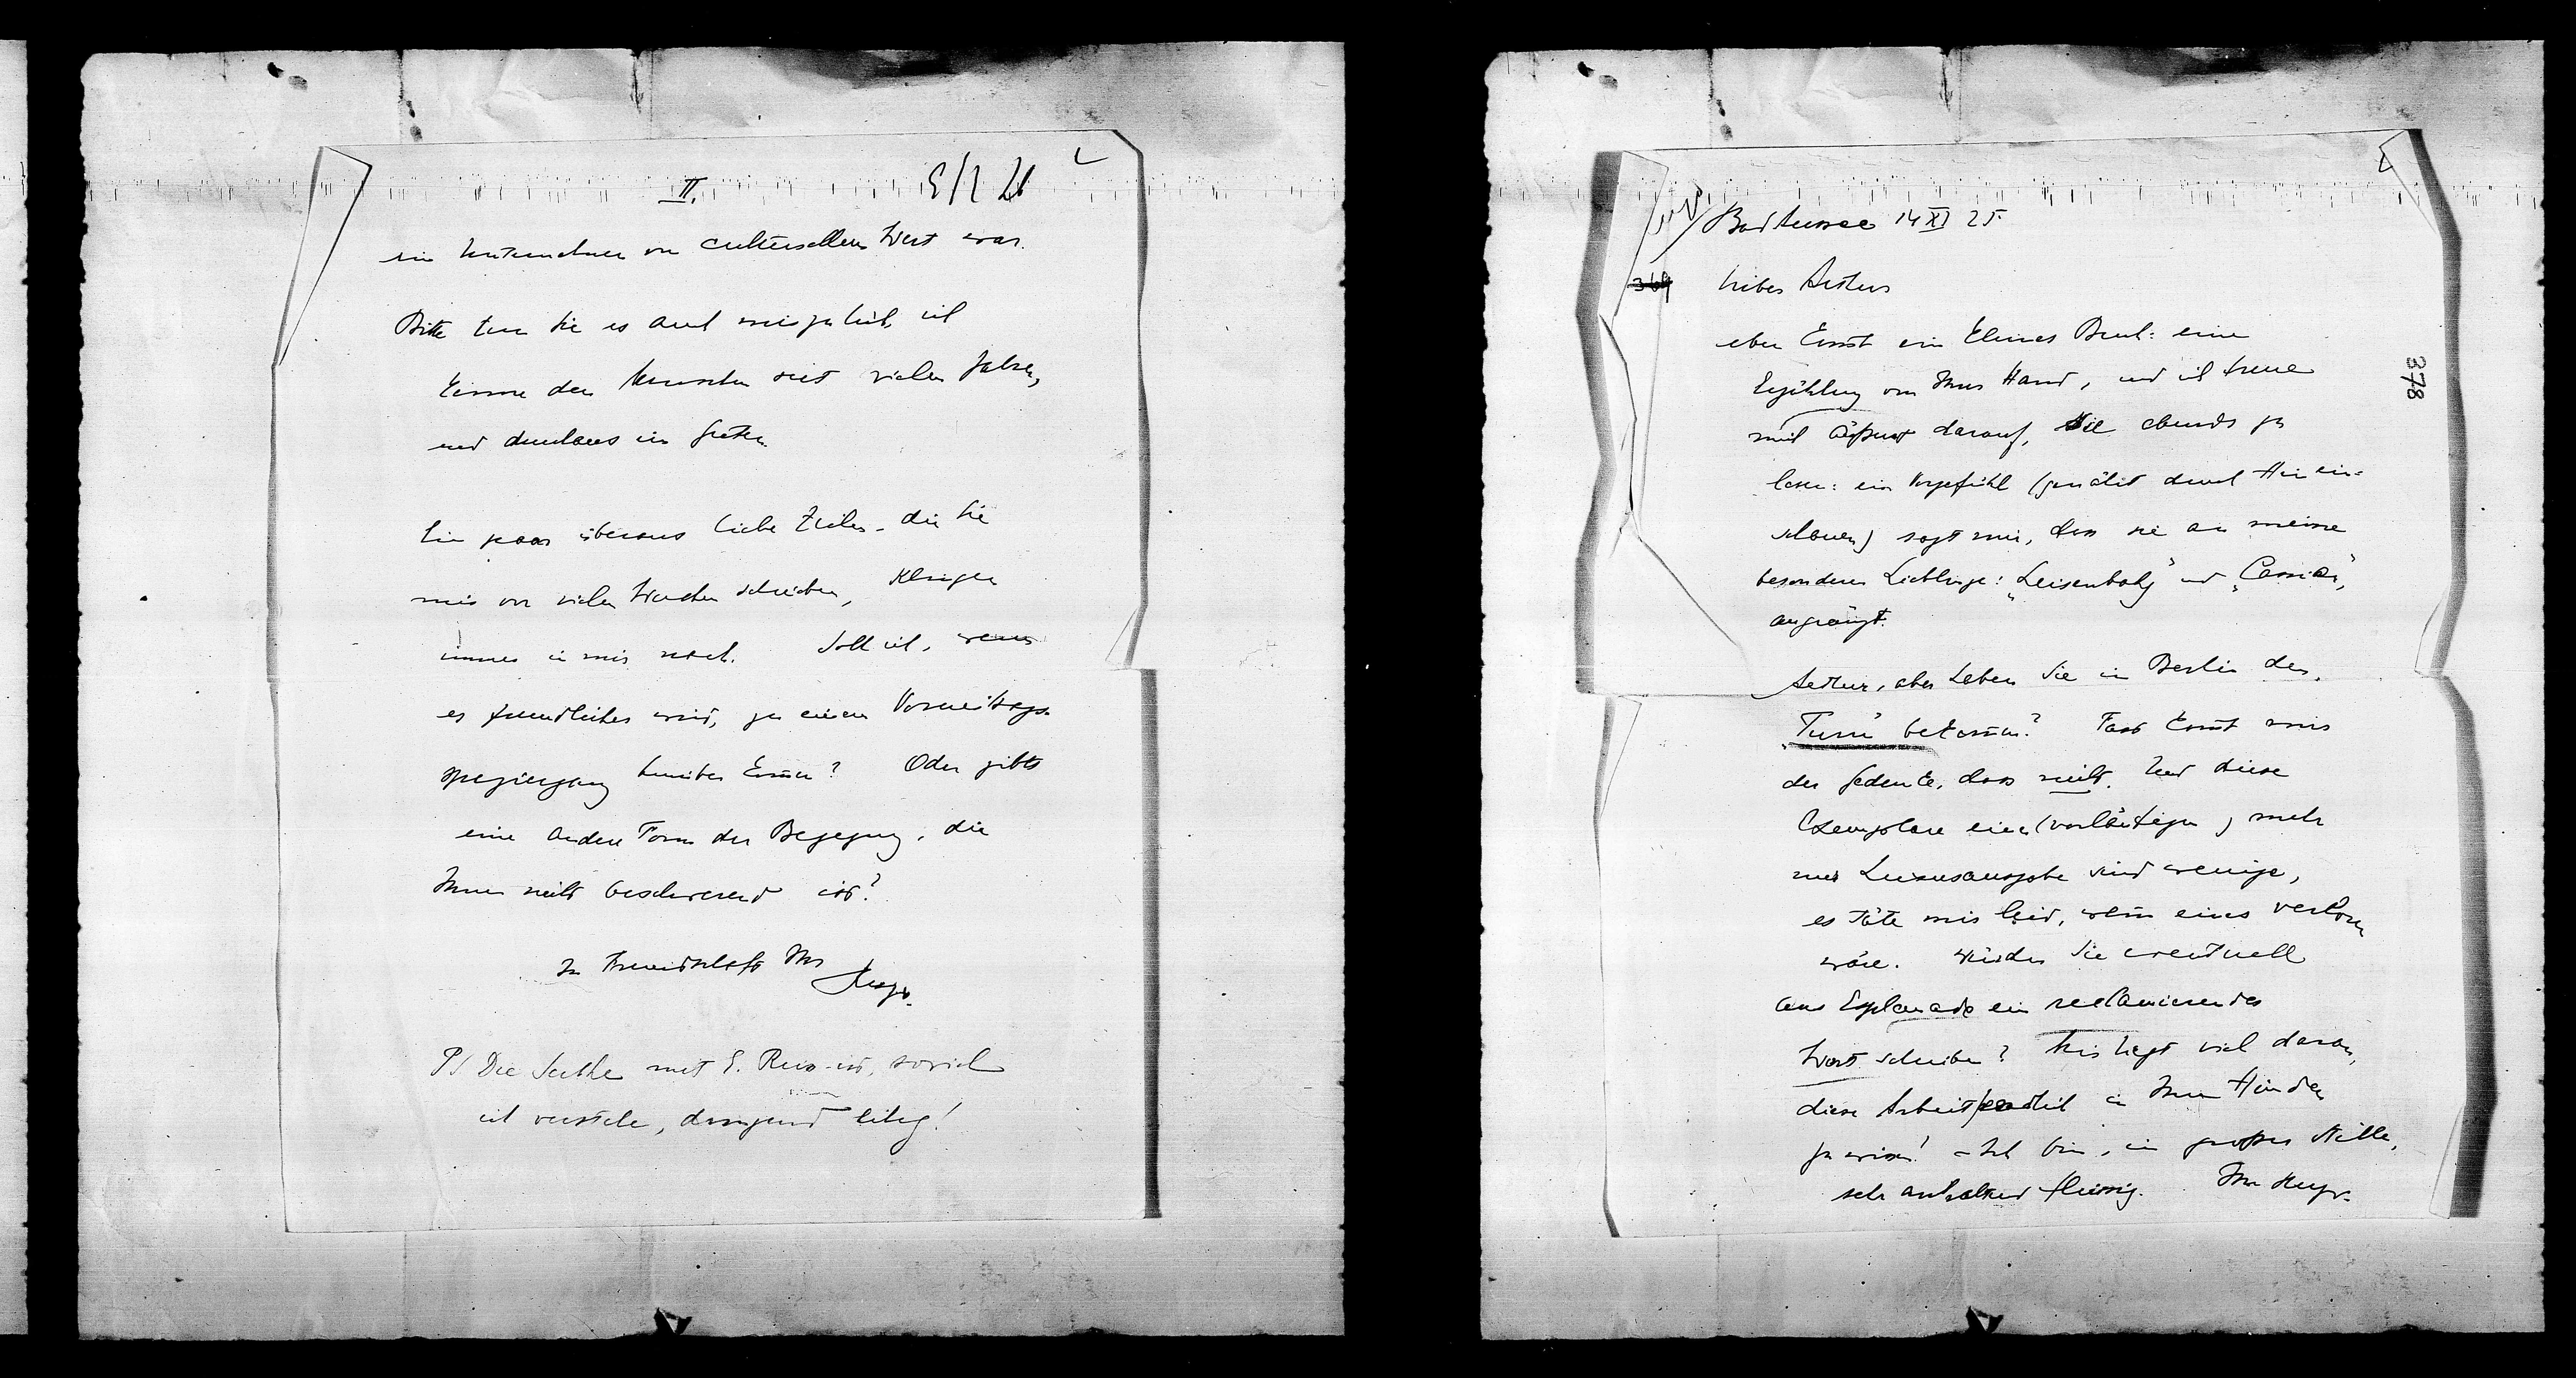 II.
ein Unternehmen von culturellem Wert war.
Bitte tun Sie es auch mir zu lieb, ich
kenne den Menschen seit vielen Jahren,
und durchaus im Guten.
Ein paar überaus liebe Zeilen, die Sie
mir vor vielen Wochen schrieben, klingen
immer in mir nach. Soll ich, wenn
es freundlicher wird, zu einem Vormittags-
spaziergang herüber kommen? Oder gibts
eine andere Form der Begegnung, die
Ihnen nicht beschwerend ist?
In Freundschaft Ihr
Hugo.
PS Die Sache mit E. Reis ist, soviel
ich verstehe, dringend eilig!
378
Bad Aussee 14 XI 25
369
Lieber Arthur
eben kommt ein kleines Buch: eine
Erzählung von Ihrer Hand, und ich freue
mich äußerst darauf, sie abends zu
lesen: ein Vorgefühl (genährt durch Hinein-
schauen) sagt mir, dass sie an meine
besonderen Lieblinge: „Leisenbohg" und „Cassian",
angränzt.
Arthur, aber haben Sie in Berlin den
„Turm" bekommen? Fast kommt mir
der Gedanke, dass nicht. Und diese
Exemplare einer (vorläufigen) mehr
nur Luxusausgabe sind wenige,
es täte mir leid, wenn eines verloren
wäre. Würden Sie eventuell
ans Esplanade ein reclamierendes
Wort schreiben? Mir liegt viel daran,
diese Arbeit in Ihren Händen
zu wissen! – Ich bin, in großer Stille,
sehr anhaltend fleissig. Ihr Hugo.